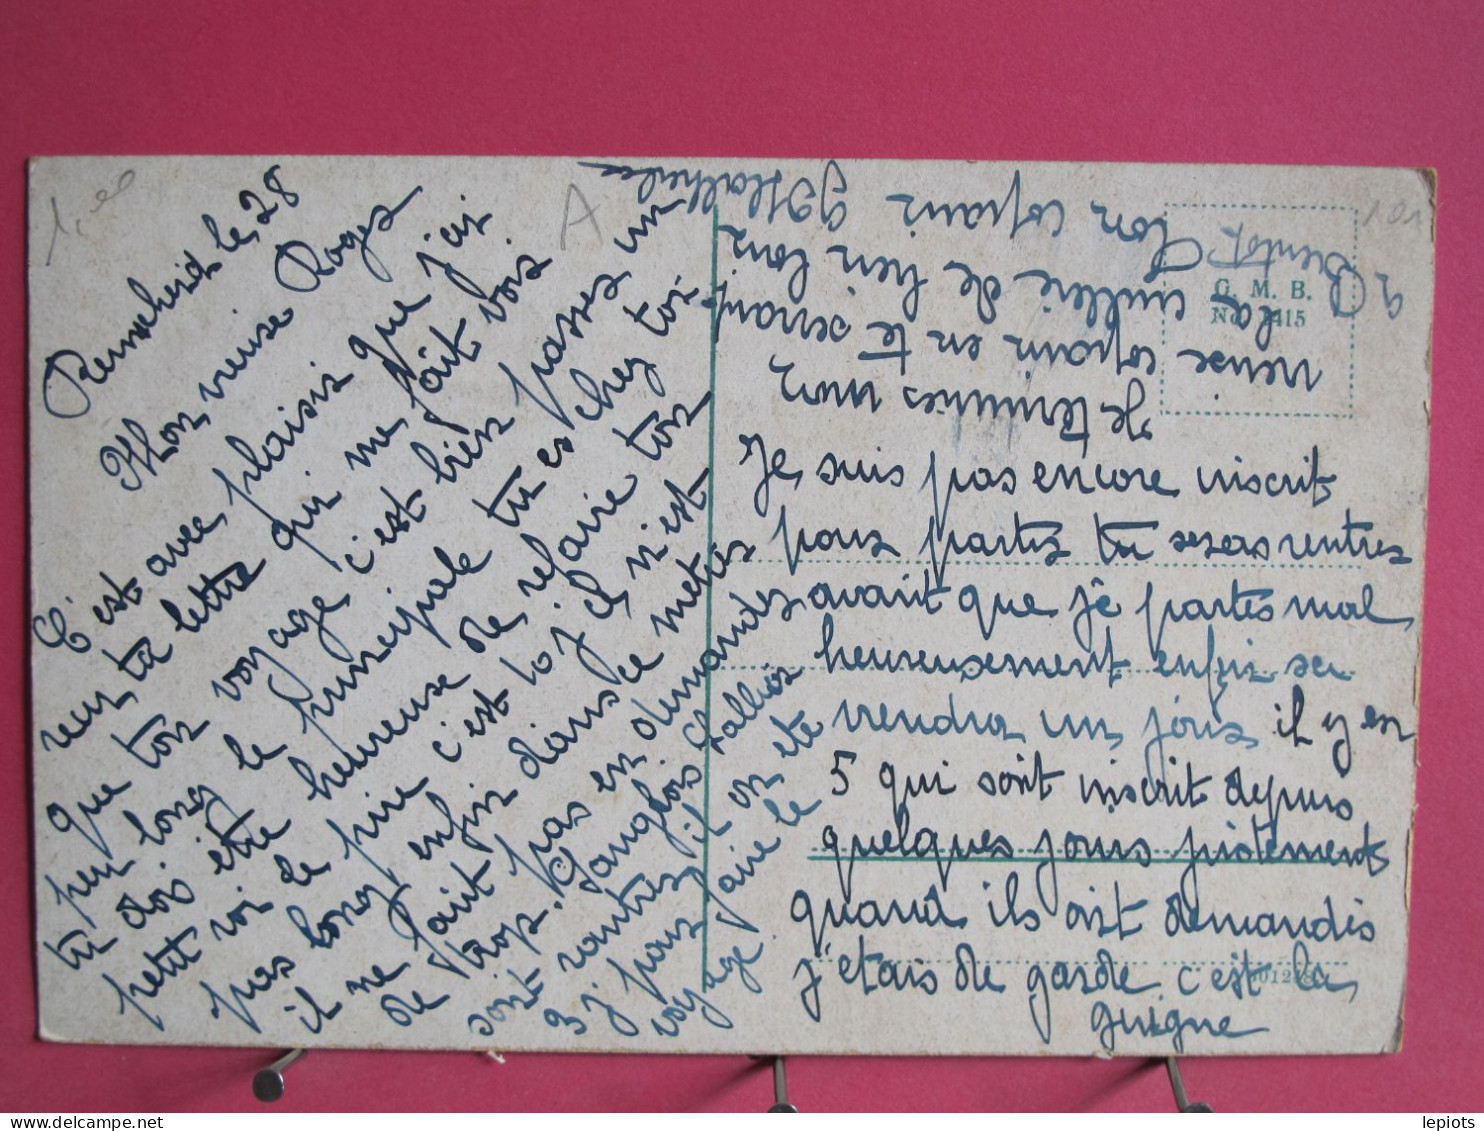 le 28
Mon vieux Roger
C'est avec plaisir que j'ai
reçu ta lettre qui me fait voir
que ton voyage c'est bien passer un
peu long le principale tu es chez toi
tu dois être heureuse de refaire ton
petit
pas long enfin dans ce metier
il ne faut pas en demander
de trop. Langlois
sont rentrer il on ete
3 j pour faire le
voyage
Je suis pas encore inscrit
pour partir tu seras rentrer
avant que je partes mal
heureusement enfin sa
viendra un jour il y en
5 qui sont inscrit depuis
quelques jours justements
quand ils ont demandés
j'etais de garde c'est la
guigne
Je termines mon
vieux copain en te serrant
la cuillère de bien loin
a Bientot Ton copain
G. M. B.
A
lepiots